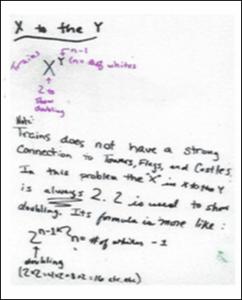 X to the Y
Trains
X Y 5 n-1
(n = # of whites
2 to
Show
doubling
Note:
Trains does not have a strong
Connection to Towers, Flags, and Castles.
In this problem the "X" in X to the Y
is always 2. 2 is used to show
doubling. Its formula is more like:
2 n-1 n = # of whites -1
doubling
(2×2=4×2=8×2=16 etc. etc)